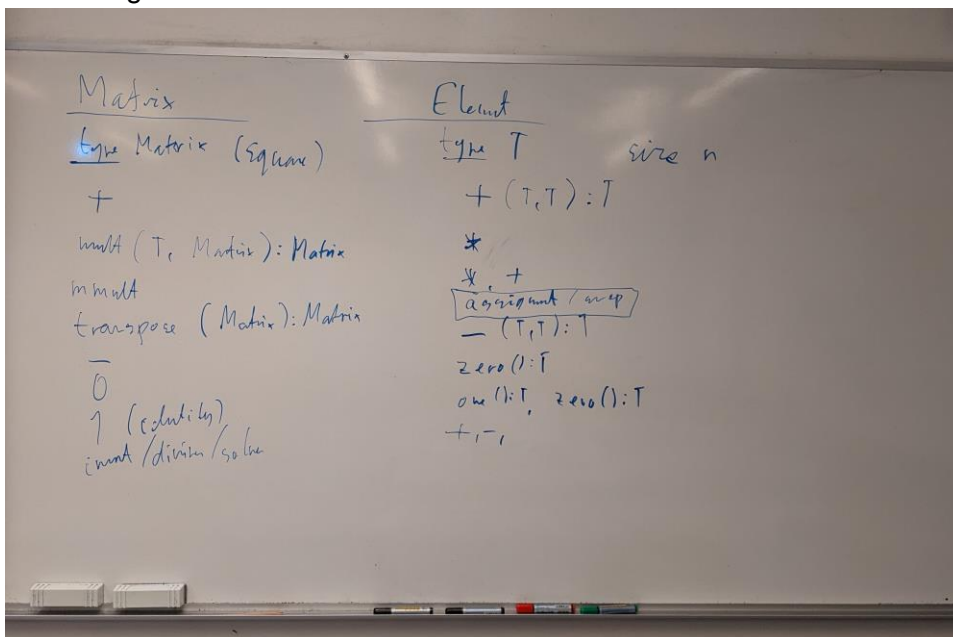 Matrix
type Matrix (Square)
+
mult (T, Matrix): Matrix
mmult
transpose (Matrix): Matrix
−
0
1 (identity)
invert / division / solve
Element
type T size n
+ (T,T): T
*
*, +
assignment / swap
− (T,T): T
zero(): T
one(): T, zero(): T
+, -,